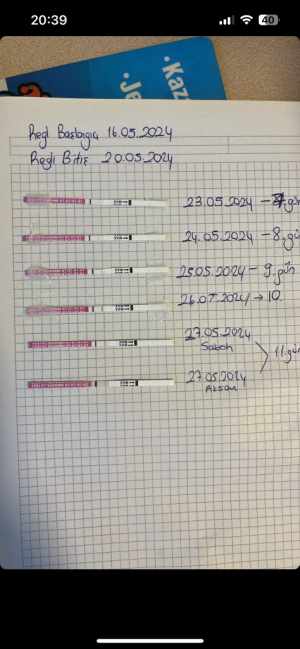 20:39
40
• Kaz
• Je
Regl Başlangıç 16.05.2024
Regl Bitiş 20.05.2024
23.05.2024 – 7.gün
24.05.2024 – 8.gü
25.05.2024 – 9.gün
26.05.2024 → 10.
27.05.2024
Sabah
11.gün
27.05.2024
Akşam